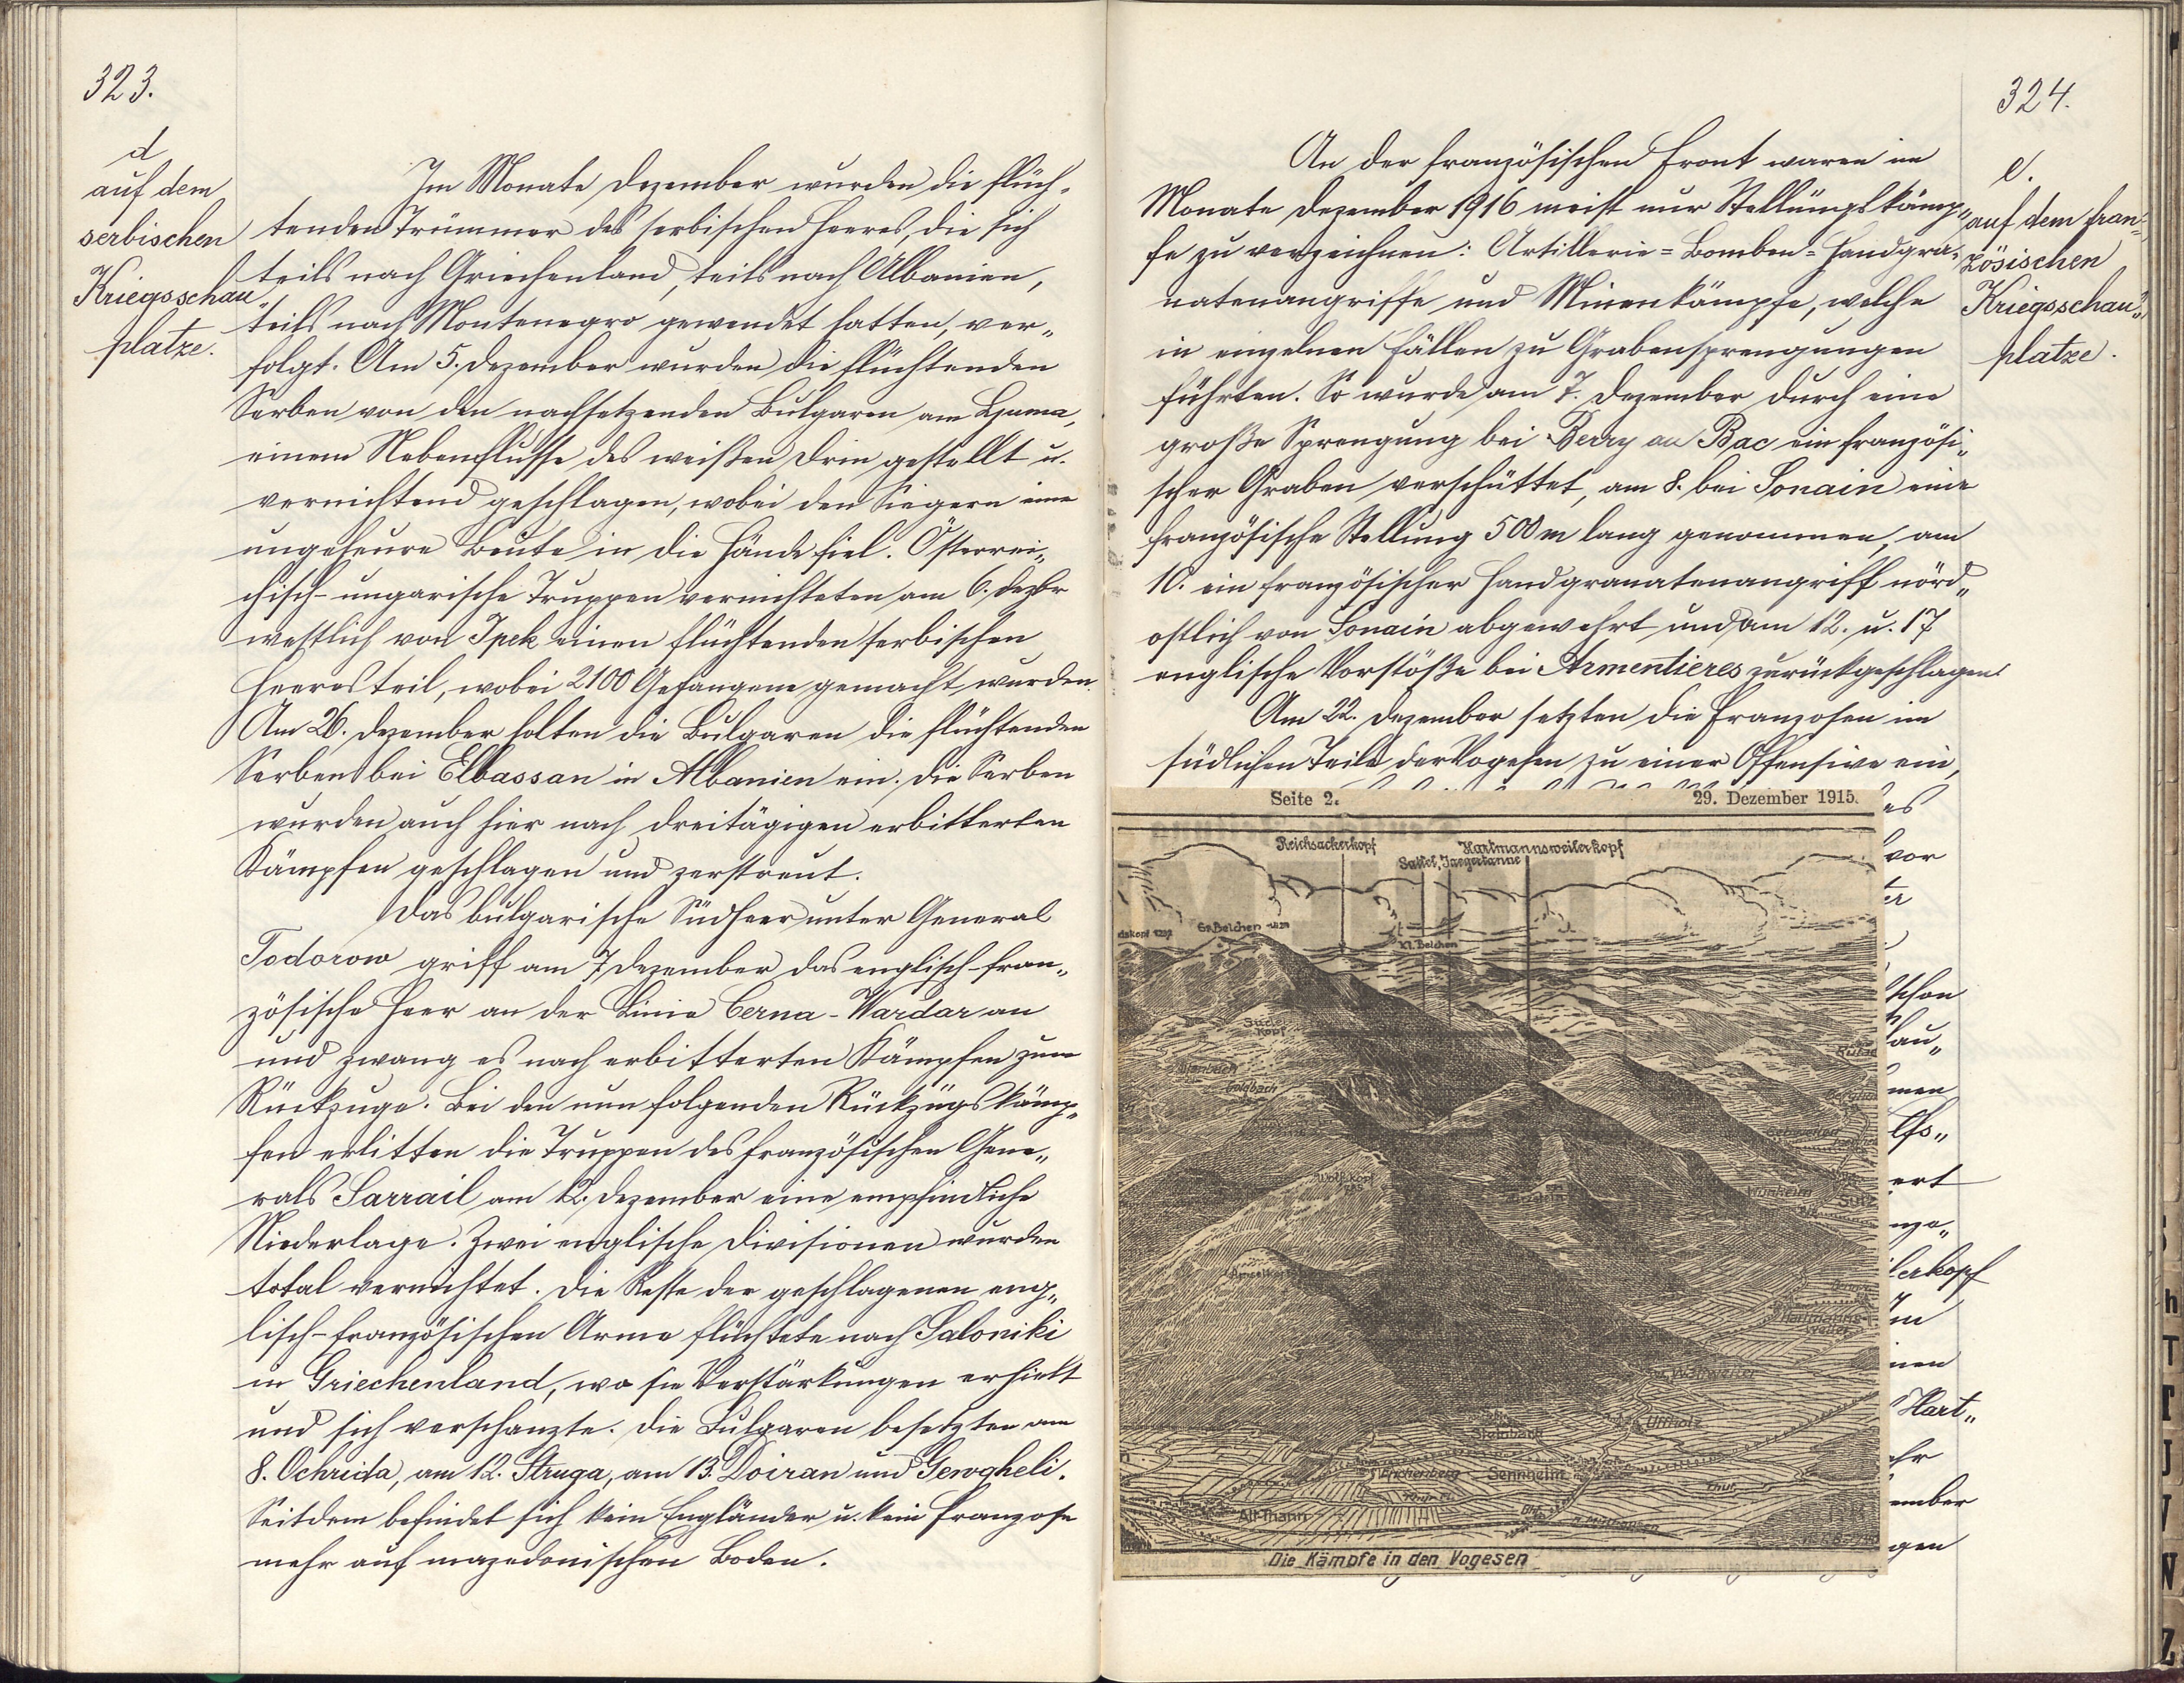 323.
d
auf dem
serbischen
Kriegsschau„
platze.
Im Monate Dezember wurden die flüch„
tenden Trümmer des serbischen Heeres, die sich
teils nach Griechenland, teils nach Albanien,
teils nach Montenegro gewendet hatten, ver„
folgt. Am 5. Dezember wurden die flüchtenden
Serben von den nachsetzenden Bulgaren am Ljuma,
einem Nebenflusse des weißen Drin gestellt u.
vernichtend geschlagen, wobei den Siegern eine
ungeheure Beute in die Hände fiel. Österrei„
chisch-ungarische Truppen vernichteten am 6. Dezbr
westlich von Ipek einen flüchtenden serbischen
Heeresteil, wobei 2100 Gefangene gemacht wurden.
Am 26. Dezember holten die Bulgaren die flüchtenden
Serben bei Elbassan in Albanien ein. Die Serben
wurden auch hier nach dreitägigen erbitterten
Kämpfen geschlagen und zerstreut.
Das bulgarische Südheer unter General
Todorow griff am 7 Dezember das englisch-fran„
zösische Heer an der Linie Cerna-Wardar an
und zwang es nach erbitterten Kämpfen zum
Rückzuge. Bei den nun folgenden Rückzugskämp„
fen erlitten die Truppen des französischen Gene„
rals Sarrail am 12. Dezember eine empfindliche
Niederlage. Zwei englische Divisionen wurden
total vernichtet. Die Reste der geschlagenen eng„
lisch-französischen Armee flüchtete nach Saloniki
in Griechenland, wo sie Verstärkungen erhielt
und sich verschanzte. Die Bulgaren besetzten am
8. Ochrida, am 12. Struga, am 13. Doiran und Gewgheli.
Seitdem befindet sich kein Engländer u. kein Franzose
mehr auf mazedonischen Boden.
324.
e.
auf dem fran„
zösischen
Kriegsschau„
platze.
An der französischen Front waren im
Monate Dezember 1916 meist nur Stellungskämp„
fe zu verzeichnen: Artillerie= Bomben= Handgra„
natenangriffe und Minenkämpfe, welche
in einzelnen Fällen zu Grabensprengungen
führten. So wurde am 7. Dezember durch eine
große Sprengung bei Berry au Bac ein französi„
scher Graben verschüttet, am 8. bei Sonain eine
französische Stellung 500 m lang genommen, am
10. ein französischer Handgranatenangriff nörd„
ostlich von Sonain abgewehrt und am 12. u. 17
englische Vorstöße bei Armentieres zurückgeschlagen.
Am 22. Dezember setzten die Franzosen im
südlichen Teile der Vogesen zu einer Offensive ein,
Seite 2. 29. Dezember 1915.
Reichsackerkopf
Sattel, Jaegertanne
Hartmannsweilerkopf
Gr. Belchen
Kl. Belchen
Goldbach
Wolfskopf
Wünheim
Sulz
Hartmanns-
weiler
Wattweiler
Uffholz
Steinbach
Sennheim
Thur
Alt-Thann
Die Kämpfe in den Vogesen
es
vor
schon
lau„
men
ert
nzo„
lerkopf
Im
nen
Hart„
hr
ember
gen